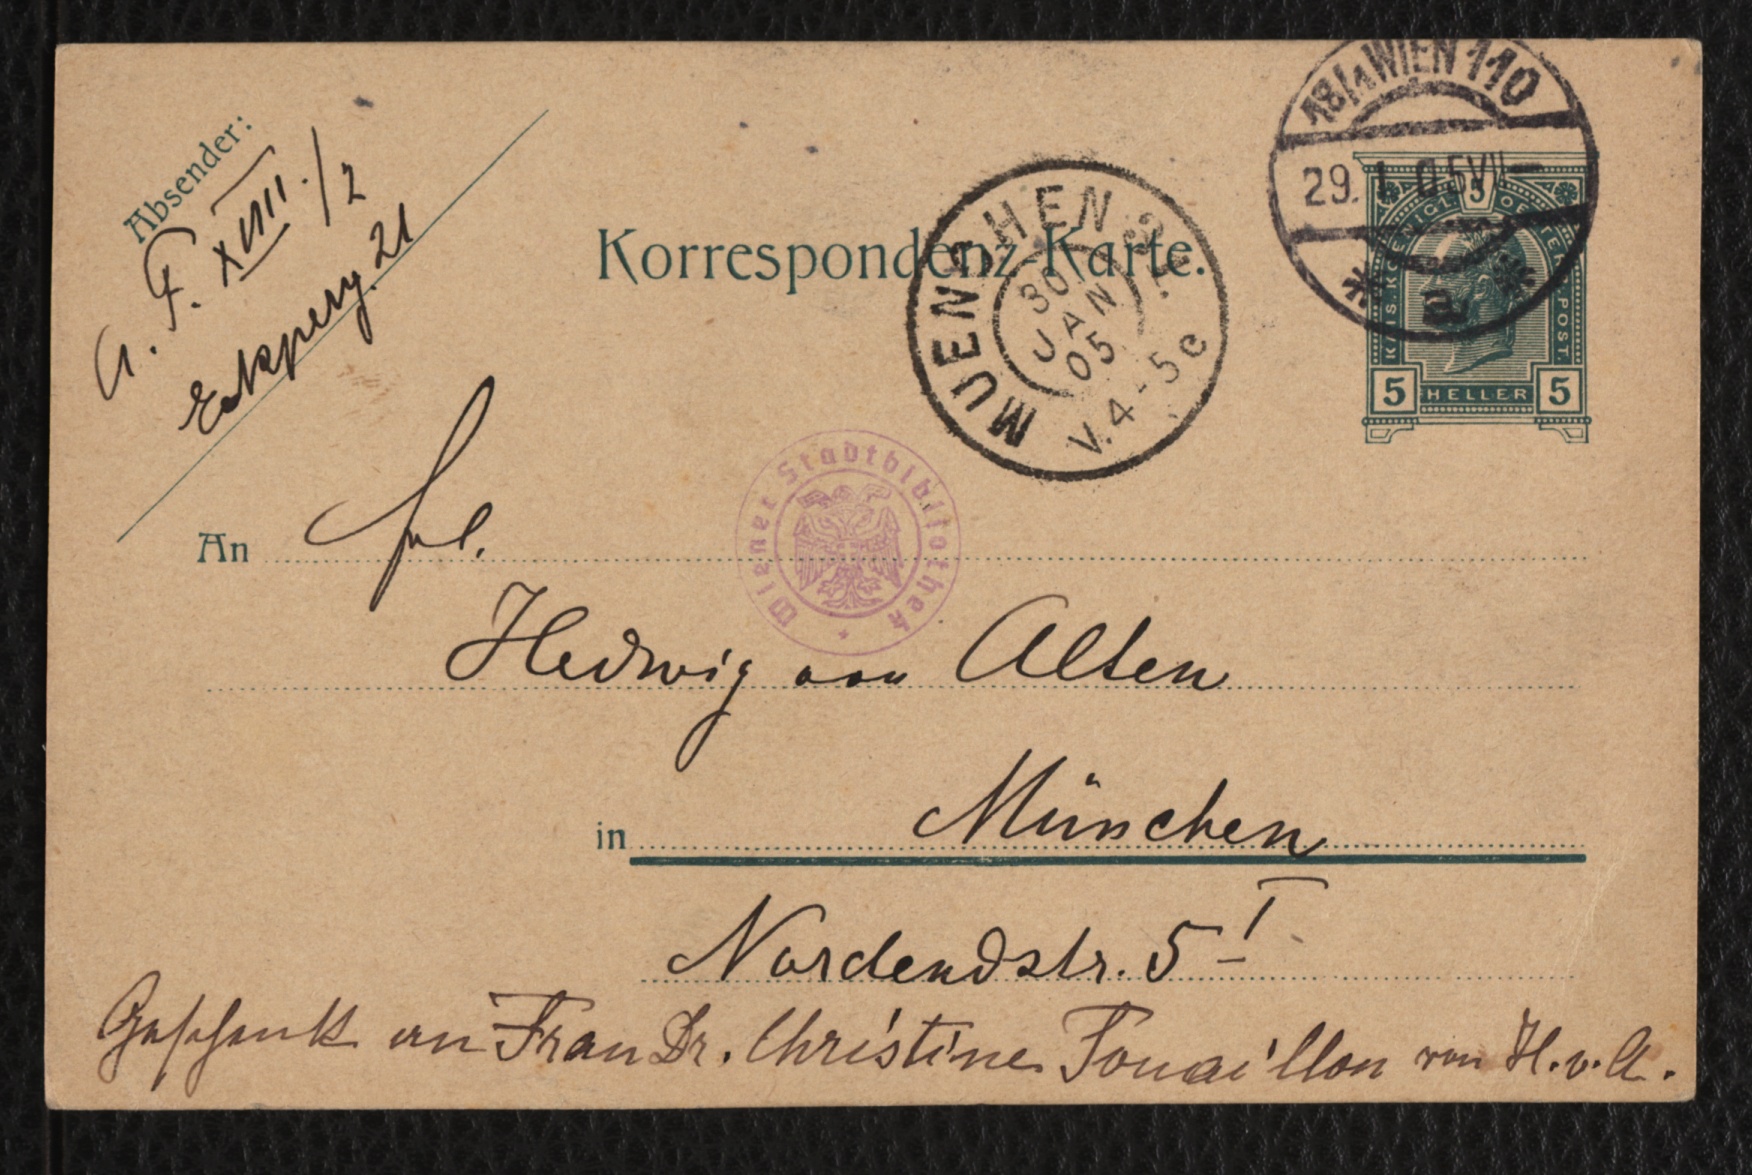 Absender:
A. F. XVIII./2
Korrespondenz-Karte.
18/1 WIEN 110
29. I. 05 VII—
* a *
MUENCHEN
30
JAN
05
V. 4-5 e
KAIS. KOENIGL. OESTERR. POST.
5
5 HELLER 5
Wiener Stadtbibliothek
An Frl.
Hedwig von Alten
in München
Nordendstr. 5 I
Geschenk an Frau Dr. Christine Touaillon von H. v. A.